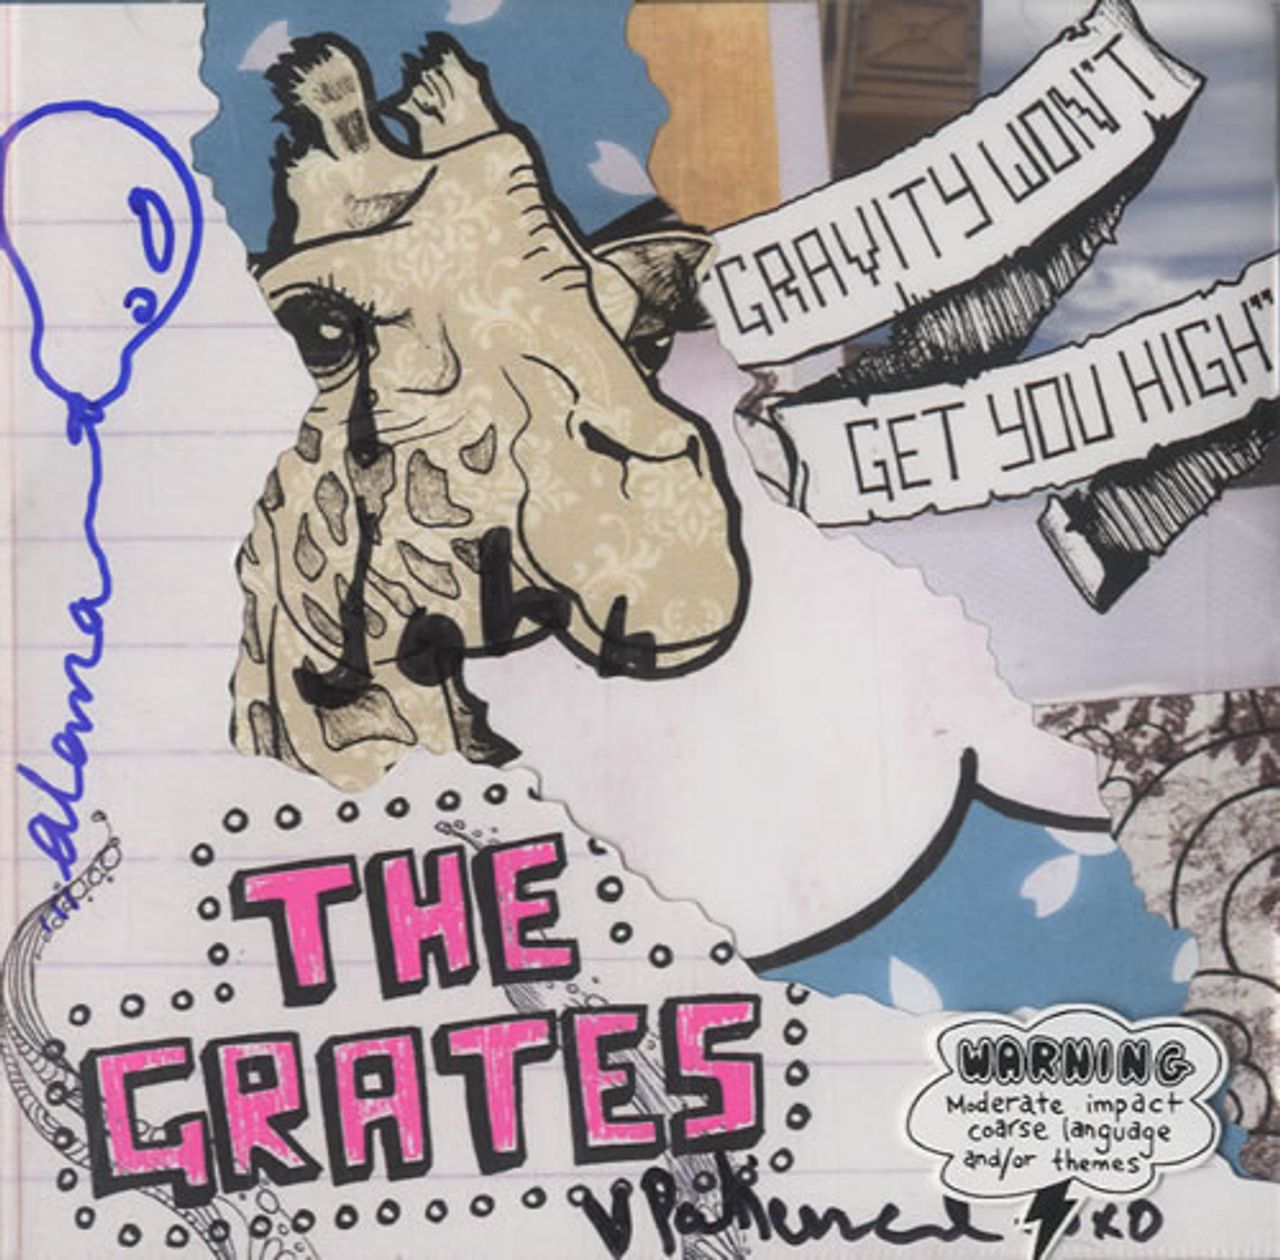 GRAVITY WON'T
GET YOU HIGH"
alana
John
THE
GRATES
WARNING
Moderate impact
coarse language
and/or themes
Patience
xo